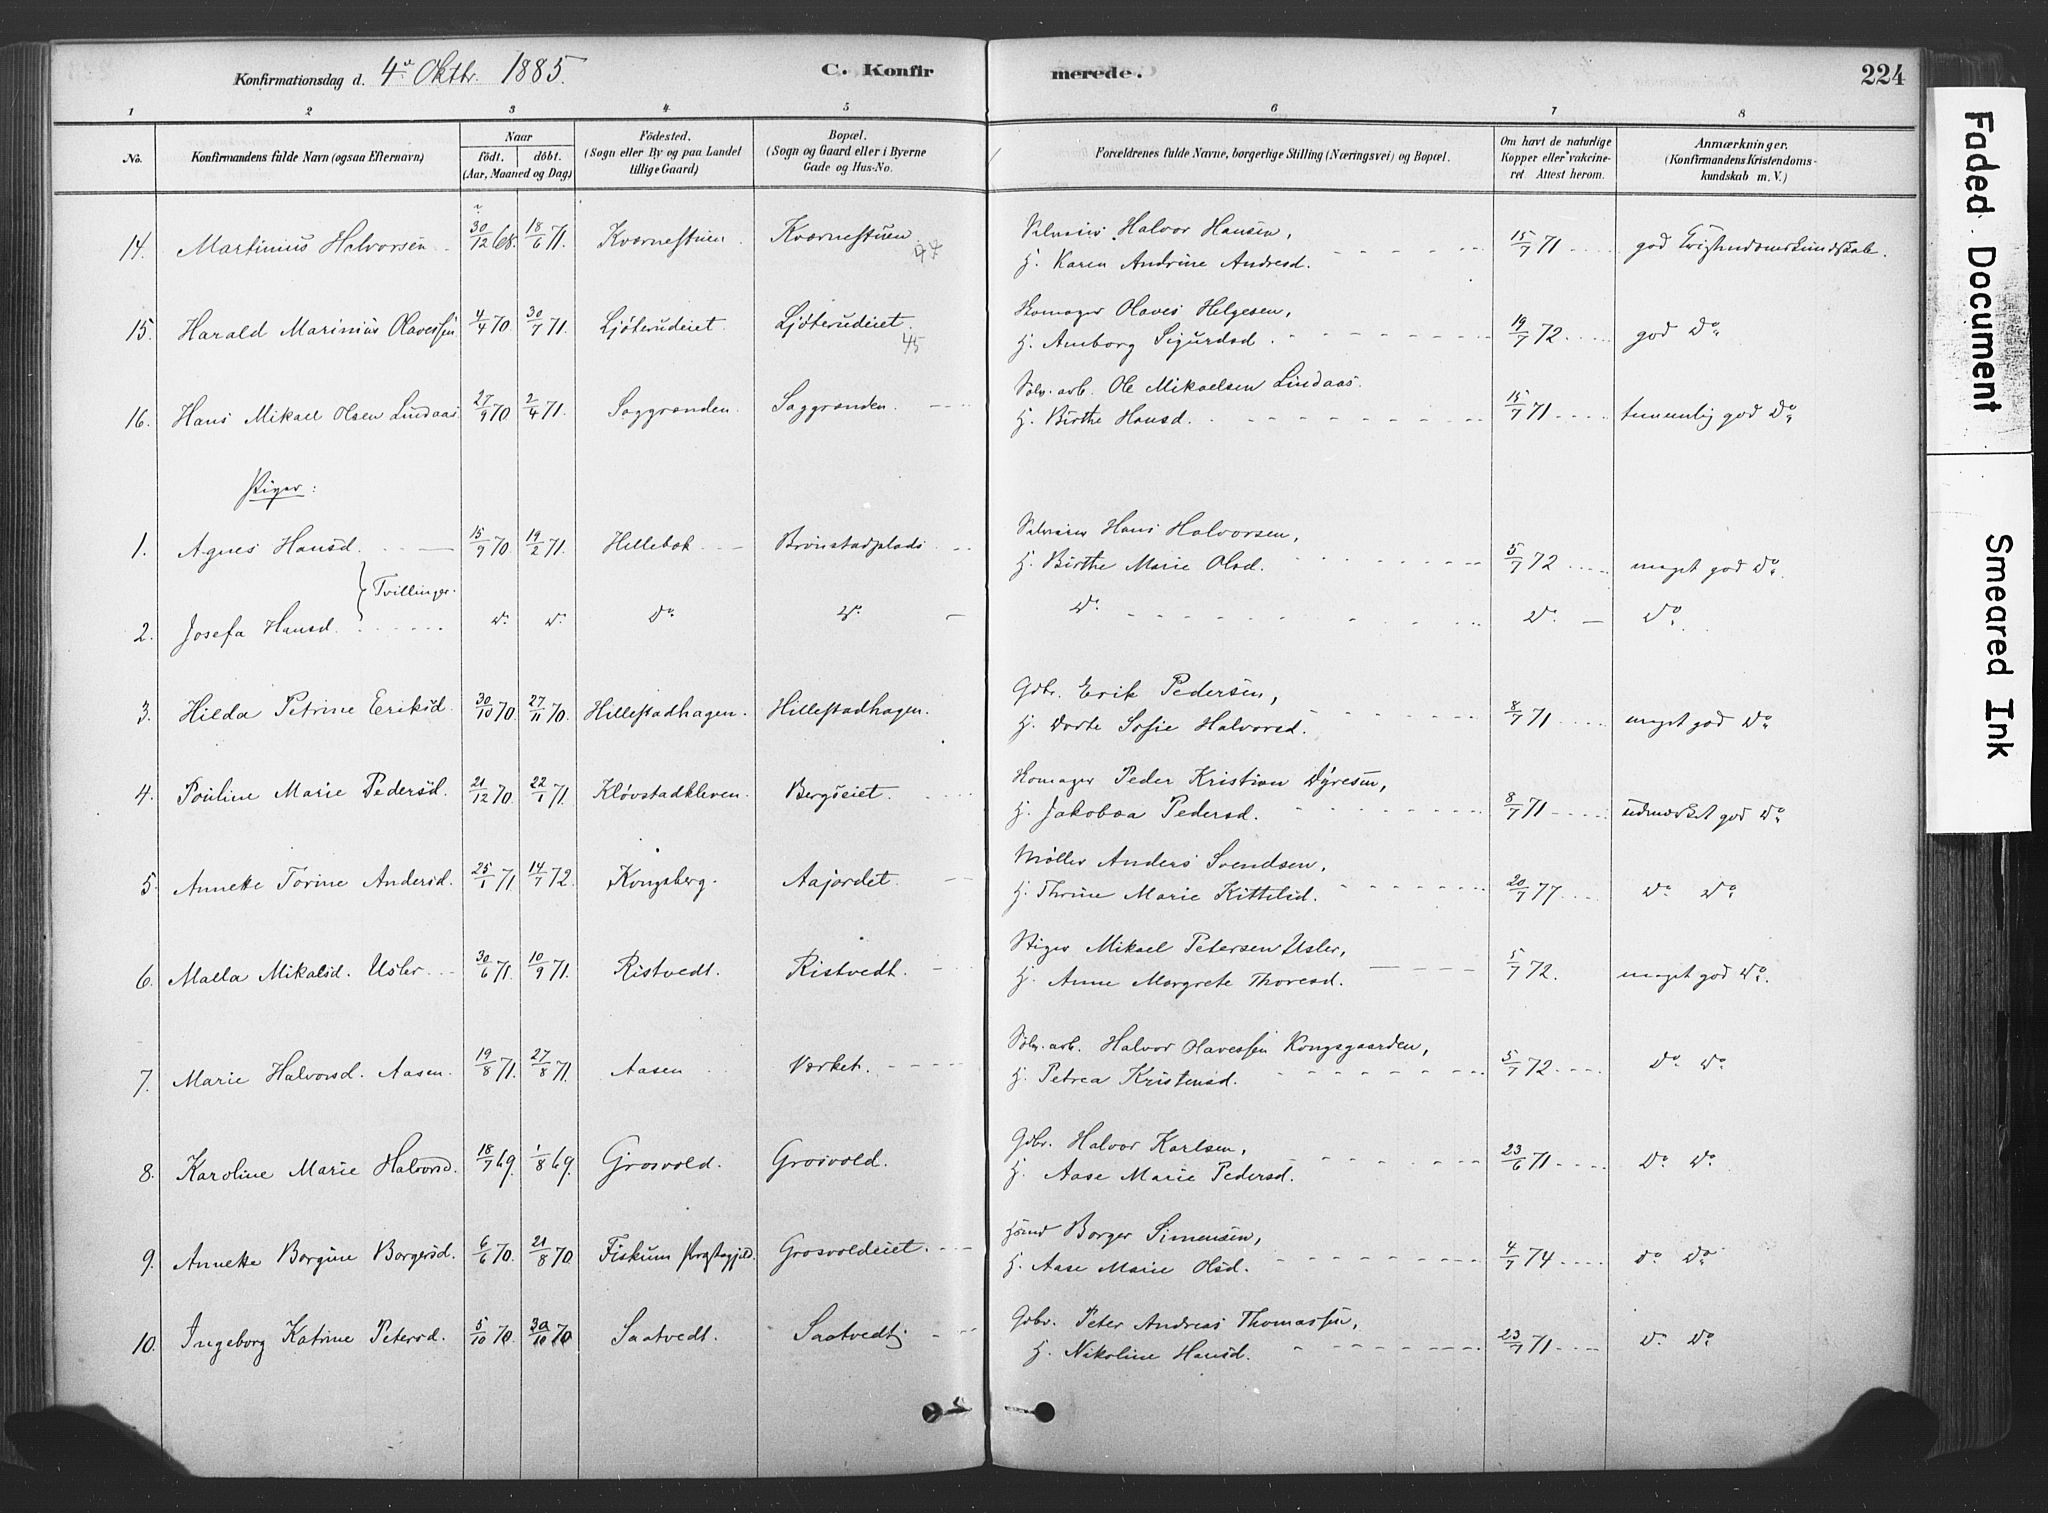 Konfirmationsdag d. 4de Oktbr. 1885. C. Konfirmerede. 224
1 2 3 4 5 6 7 8
No. Konfirmandens fulde Navn (ogsaa Efternavn) Naar födt. döbt. (Aar, Maaned og Dag) Födested. (Sogn eller By og paa Landet tillige Gaard) Bopæl. (Sogn og Gaard eller i Byerne Gade og Hus-No. Forældrenes fulde Navne, borgerlige Stilling (Næringsvei) og Bopæl. Om havt de naturlige Kopper eller vakcineret. Attest herom. Anmærkninger. (Konfirmandens Kristendomskundskab m. V.)
14. Martinius Halvorsen 30/12 68. 18/6 71. Kværnestuen Kværnestuen Halvor Hansen, 15/7 71 god Kristendomskundskab.
H. Karen Andrine Andresd.
15. Harald Marinius Olavessen 4/4 70. 30/7 71. Ljöterudeiet. Ljöterudeiet. 45 Homager Olaves Helgesen, 19/7 72 god Do
H. Amborg Sigurdsd.
16. Hans Mikael Olsen Lindaas 27/9 70. 2/4 71. Saggrenden. Saggrenden. Sølv. arb. Ole Mikaelsen Lindaas. 15/7 71 temmelig god Do
H. Birthe Hansd.
Piger:
1. Agnes Hansd. 15/9 70. 19/2 71. Hillebæk Brönstadplads Hans Halvorsen, 5/7 72 meget god Do
H. Birthe Marie Olsd.
Tvillinger.
2. Josefa Hansd. Do Do Do Do Do Do Do
3. Hilda Petrine Eriksd. 30/10 70. 27/11 70. Hillestadhagen. Hillestadhagen. Gdbr. Erik Pedersen, 8/7 71 meget god Do
H. Dorte Sofie Halvorsd.
4. Pouline Marie Pedersd. 21/12 70. 22/1 71. Kløvstadkleven. Bergseiet. Homager Peder Kristian Dyresen, 8/7 71 udmærket god Do
H. Jakobæa Pedersd.
5. Annette Torine Andersd. 25/1 71. 14/7 72. Kongsberg. Aajordet. Møller Anders Svendsen, 20/7 77 Do Do
H. Thrine Marie Kittilsd.
6. Malla Mikalsd. Usler 30/6 71. 10/9 71. Ristvedt. Ristvedt. Stiger Mikael Petersen Usler, 5/7 72. meget god Do
H. Anne Margrete Thoresd.
7. Marie Halvorsd. Aasen. 19/8 71. 27/8 71. Aasen Værket. Sølv. arb. Halvor Olavessen Kongsgaarden, 5/7 72 Do Do
H. Petrea Kristensd.
8. Karoline Marie Halvorsd. 18/7 69. 1/8 69. Grosvold. Grosvold. Gdbr. Halvor Karlsen, 23/6 71 Do Do
H. Aase Marie Pedersd.
9. Annette Borgine Borgersd. 6/6 70. 21/8 70. Fiskum Præstegjeld. Grosvoldeiet. Hsmd Borger Simensen, 4/7 74 Do Do
H. Aase Marie Olsd.
10. Ingeborg Katrine Petersd. 5/10 70. 30/10 70 Saatvedt. Saatvedt Gdbr. Peter Andreas Thomassen, 23/7 71 Do Do
H. Nikoline Hansd.
Faded Document
Smeared Ink